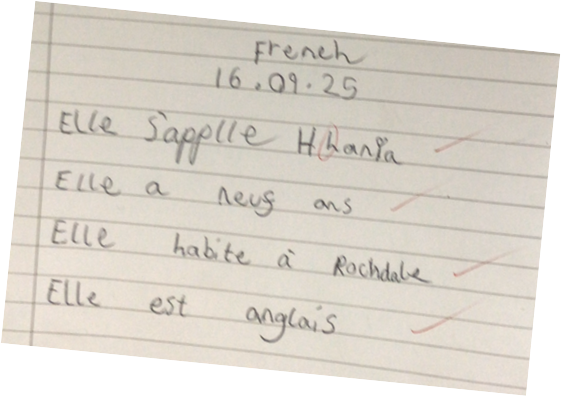 French
16.09.25
Elle s'applle Hhanïa
Elle a neuf ans
Elle habite à Rochdale
Elle est anglais